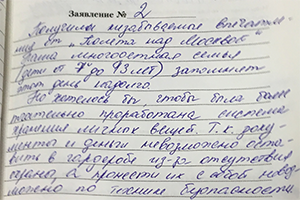 Заявление № 2
Получили незабываемое впечатле-
ние от "Полёта над Москвой"
Наша многодетная семья
(дети от 7 до 13 лет) запомнит
этот день надолго.
Но хотелось бы, чтобы была более
тщательно проработана система
хранения личных вещей. Т.к. доку-
менты и деньги невозможно оста-
вить в гардеробе из-за отсутствия
охраны, а пронести их с собой невоз-
можно по технике безопасности.